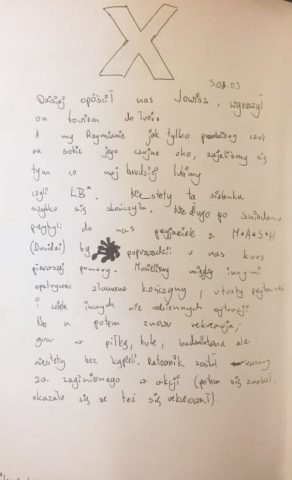 X
9.02.03
Dzisiaj opóścił nas Jowisz, wyruszył
on bowiem do
A my Rzymianie jak tylko przestaliśmy czuć
na sobie jego czujne oko, zajeliśmy się
tym co naj bardziej lubimy
czyli LB*. Nie stety ta sielanka
szybko się skończyła. Nie długo po śniadaniu
przybyli do nas przyjaciele z M*A*S*H
(Druidzi) by poprowadzić u nas kurs
pierwszej pomocy. Musieliśmy między innymi
opatrywać złamane kończyny, utraty przytomności
i wiele innych nie codziennych sytuacji
No a potem znowu rekreacja,
gra w piłkę, bule, badmintona ale
niestety bez kąpieli. Ratownik został uznany
za zaginionego w akcji (potem się znalazł,
okazało się że też się rekreował).